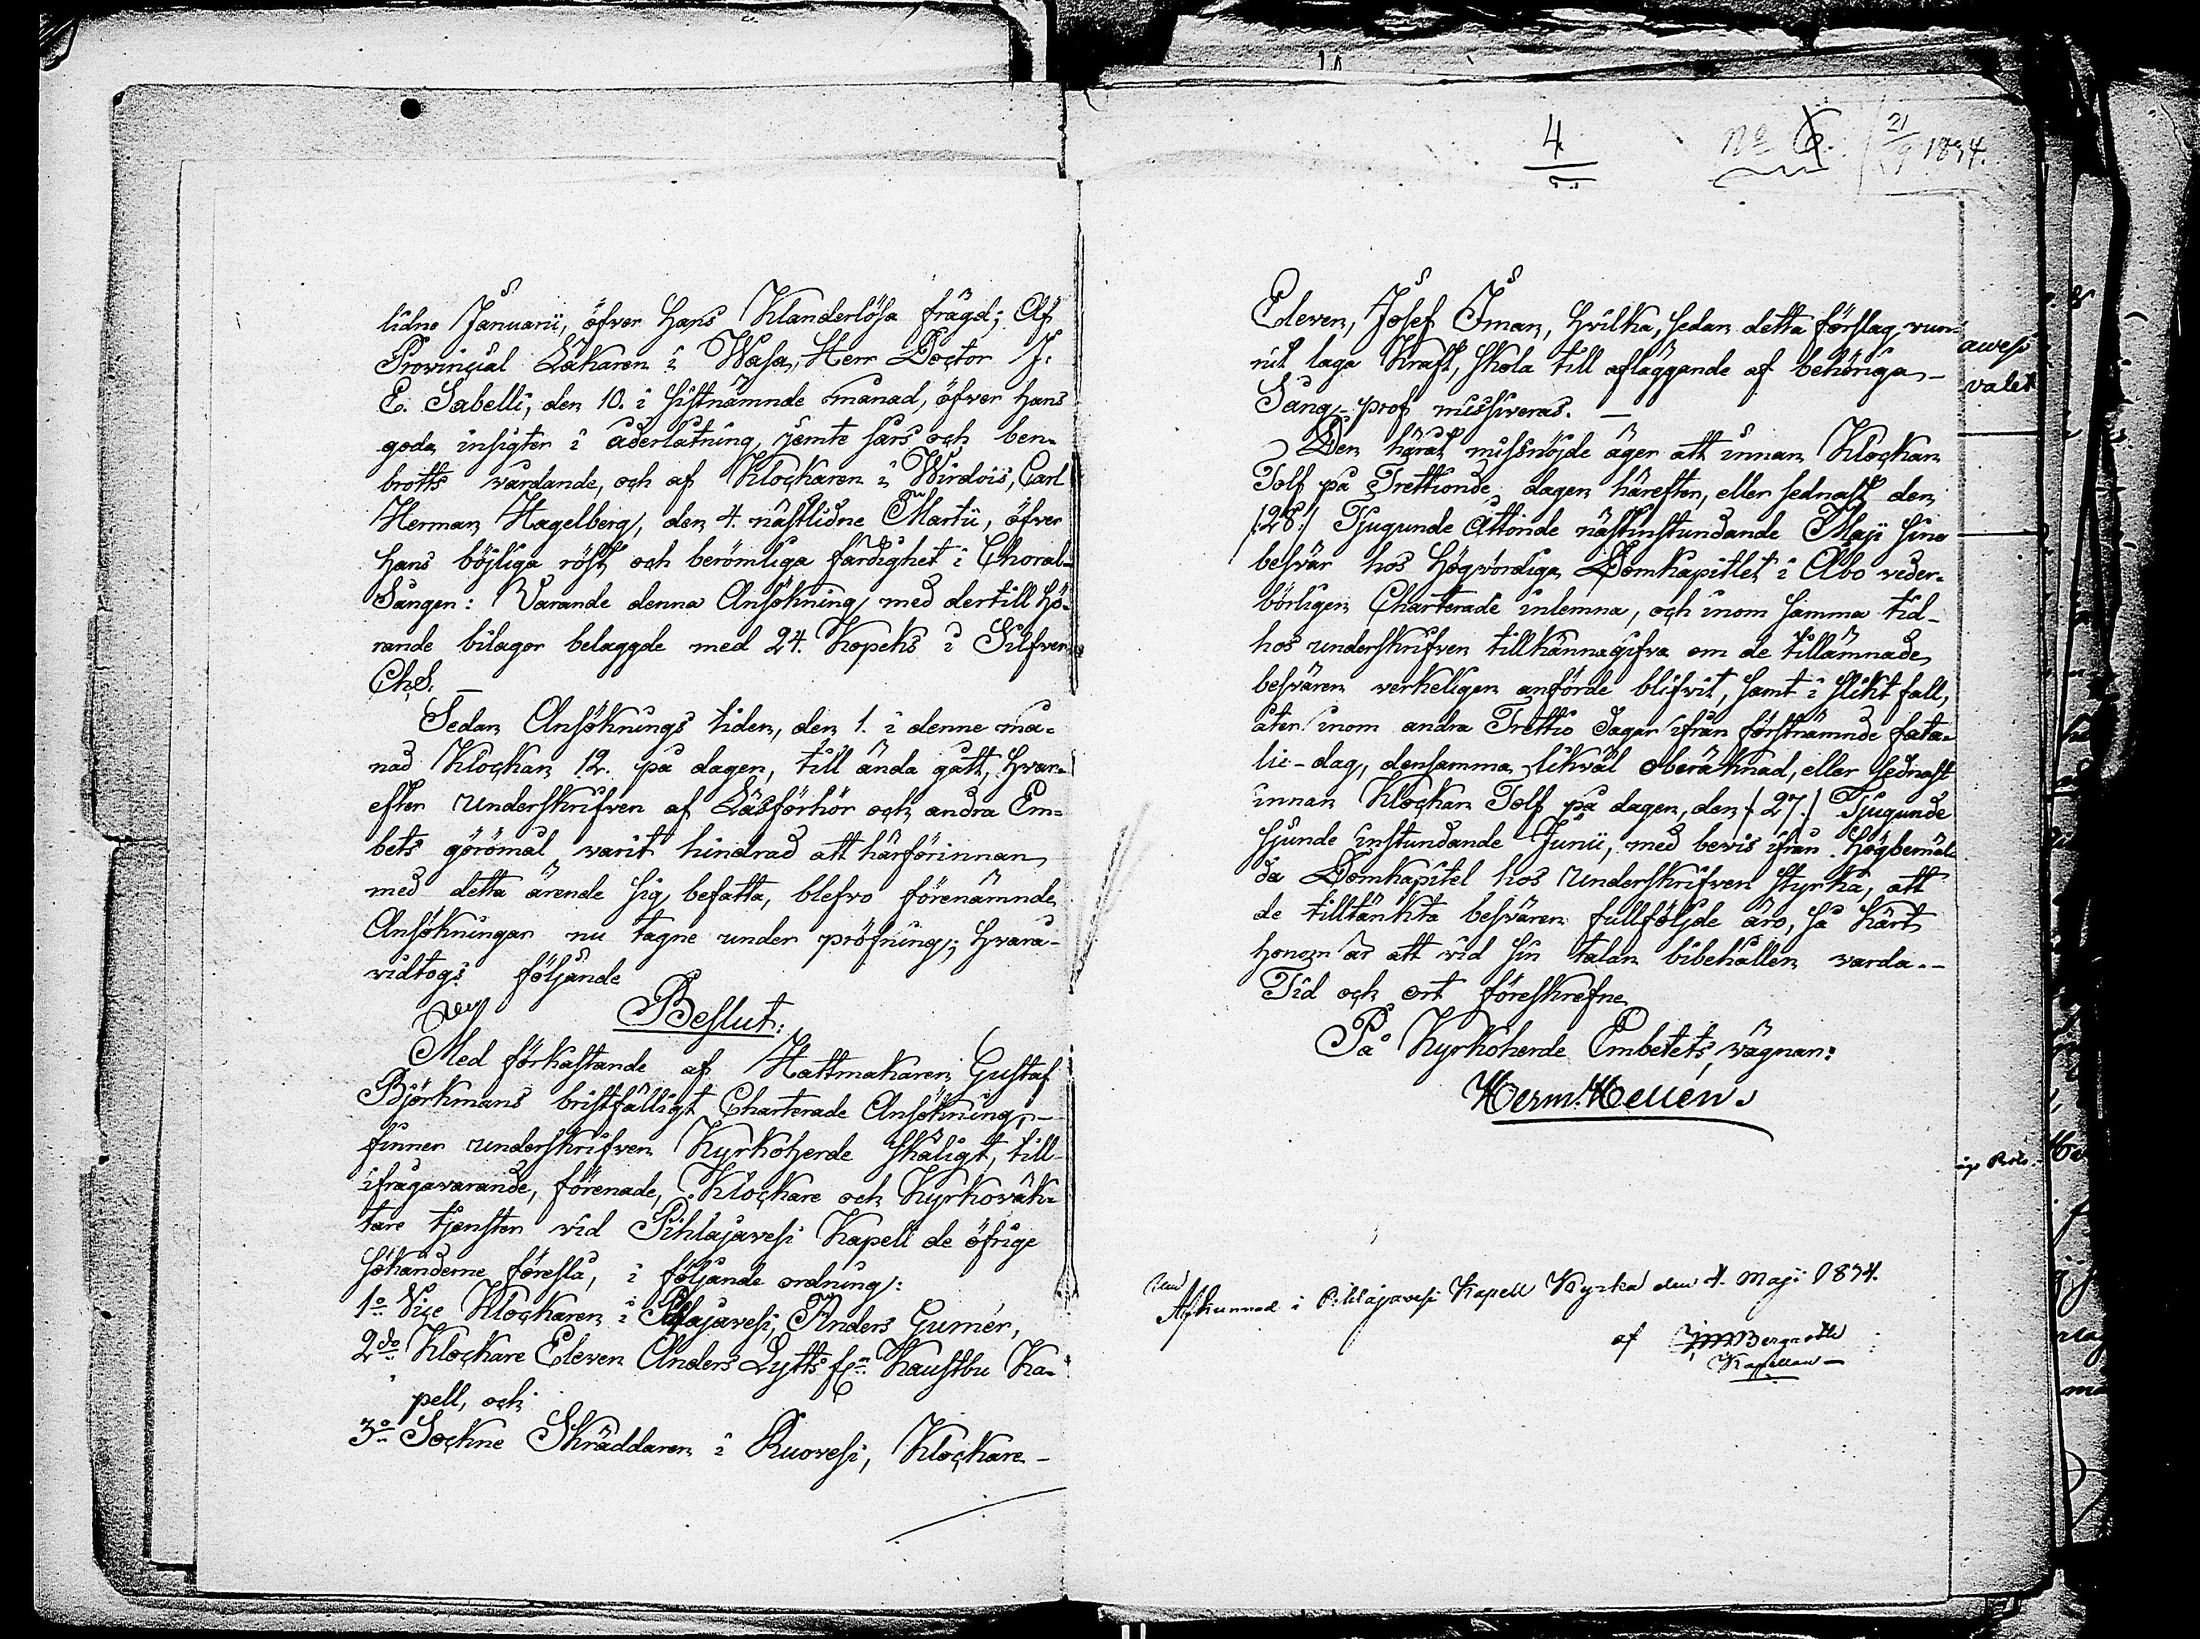 lidne Januarii, öfver Hans Klanderlösa frägd; Af
Provincial Läkaren i Wasa, Herr Doctor J.
E. Sabelli, den 10. i sistnämnde månad, öfver hans
goda insigter i åderlåtning, jemte sårs och ben-
brotts vårdande, och af Klockaren i Wirdois, Carl
Herman Hagelberg, den 4. nästlidne Martii, öfver
hans böjliga röst, och berömliga färdighet i Choral-
Sången: Varande denna Ansökning med dertill hö-
rande bilagor belaggde med 24. Kopeks i Silfver
Ch. S. —
Sedan Ansöknings tiden, den 1. i denne må-
nad Klockan 12. på dagen, till ända gått, hvar-
efter Underskrifven af Läsförhör och andra Em-
bets göromål varit hindrad att härförinnan
med detta ärende sig befatta, blefvo förenämnde
Ansökningar nu tagne under pröfning; hvara-
vidtogs följande
Beslut:
Med förkastande af Hattmakaren Gustaf
Björkmans bristfälligt Charterade Ansökning,
finner underskrifven Kyrkoherde skäligt, till
ifrågavarande, förenade, Klockare och Kyrkoväk-
tare tjensten vid Pihlajavesi Kapell de öfrige
sökanderne föreslå, i följande ordning:
1o Vice Klockaren i Pihlajavesi, Anders Gumér,
2do Klockare Eleven Anders Lytts frn Kaustbu Ka-
pell, och
3o Sockne Skräddaren i Ruovesi, Klockare-
4
No 6. 21/ 1834.
Eleven, Josef Öman, hvilka, sedan detta förslag vun-
nit laga Kraft, skola till afläggande af behöriga
Sång-prof missiveras. —
Den häråt missnöjde äger att innan Klockan
Tolf på Trettionde dagen härefter, eller sednast den
/:28:/ Tjugunde Åttonde nästinstundande Maji sina
besvär hos Högvördiga Domkapitlet i Åbo veder-
börligen Charterade inlemna, och inom samma tid
hos underskrifven tillkännagifva om de tillämnade
besvären verkeligen anförde blifvit, samt i slikt fall,
åter inom andra Trettio dagar ifrån förstnämnde fata-
lie-dag, densamma likväl oberäknad, eller sednast
innan Klockan Tolf på dagen, den /:27:/ Tjugunde
sjunde instundande Junii, med bevis ifrån Högbemäl-
da Domkapitel hos Underskrifven styrka, att
de tilltänkta besvären fullföljde äro, så kärt
honom är att vid sin talan bibehållen varda.-
Tid och ort föreskrefne
På Kyrkoherde Embetets vägnar:
Herm: Hellén.
Afkunnad i Pihlajavesi Kapell Kyrka den 4. Maji 1834.
af Bergroth
Kapellan